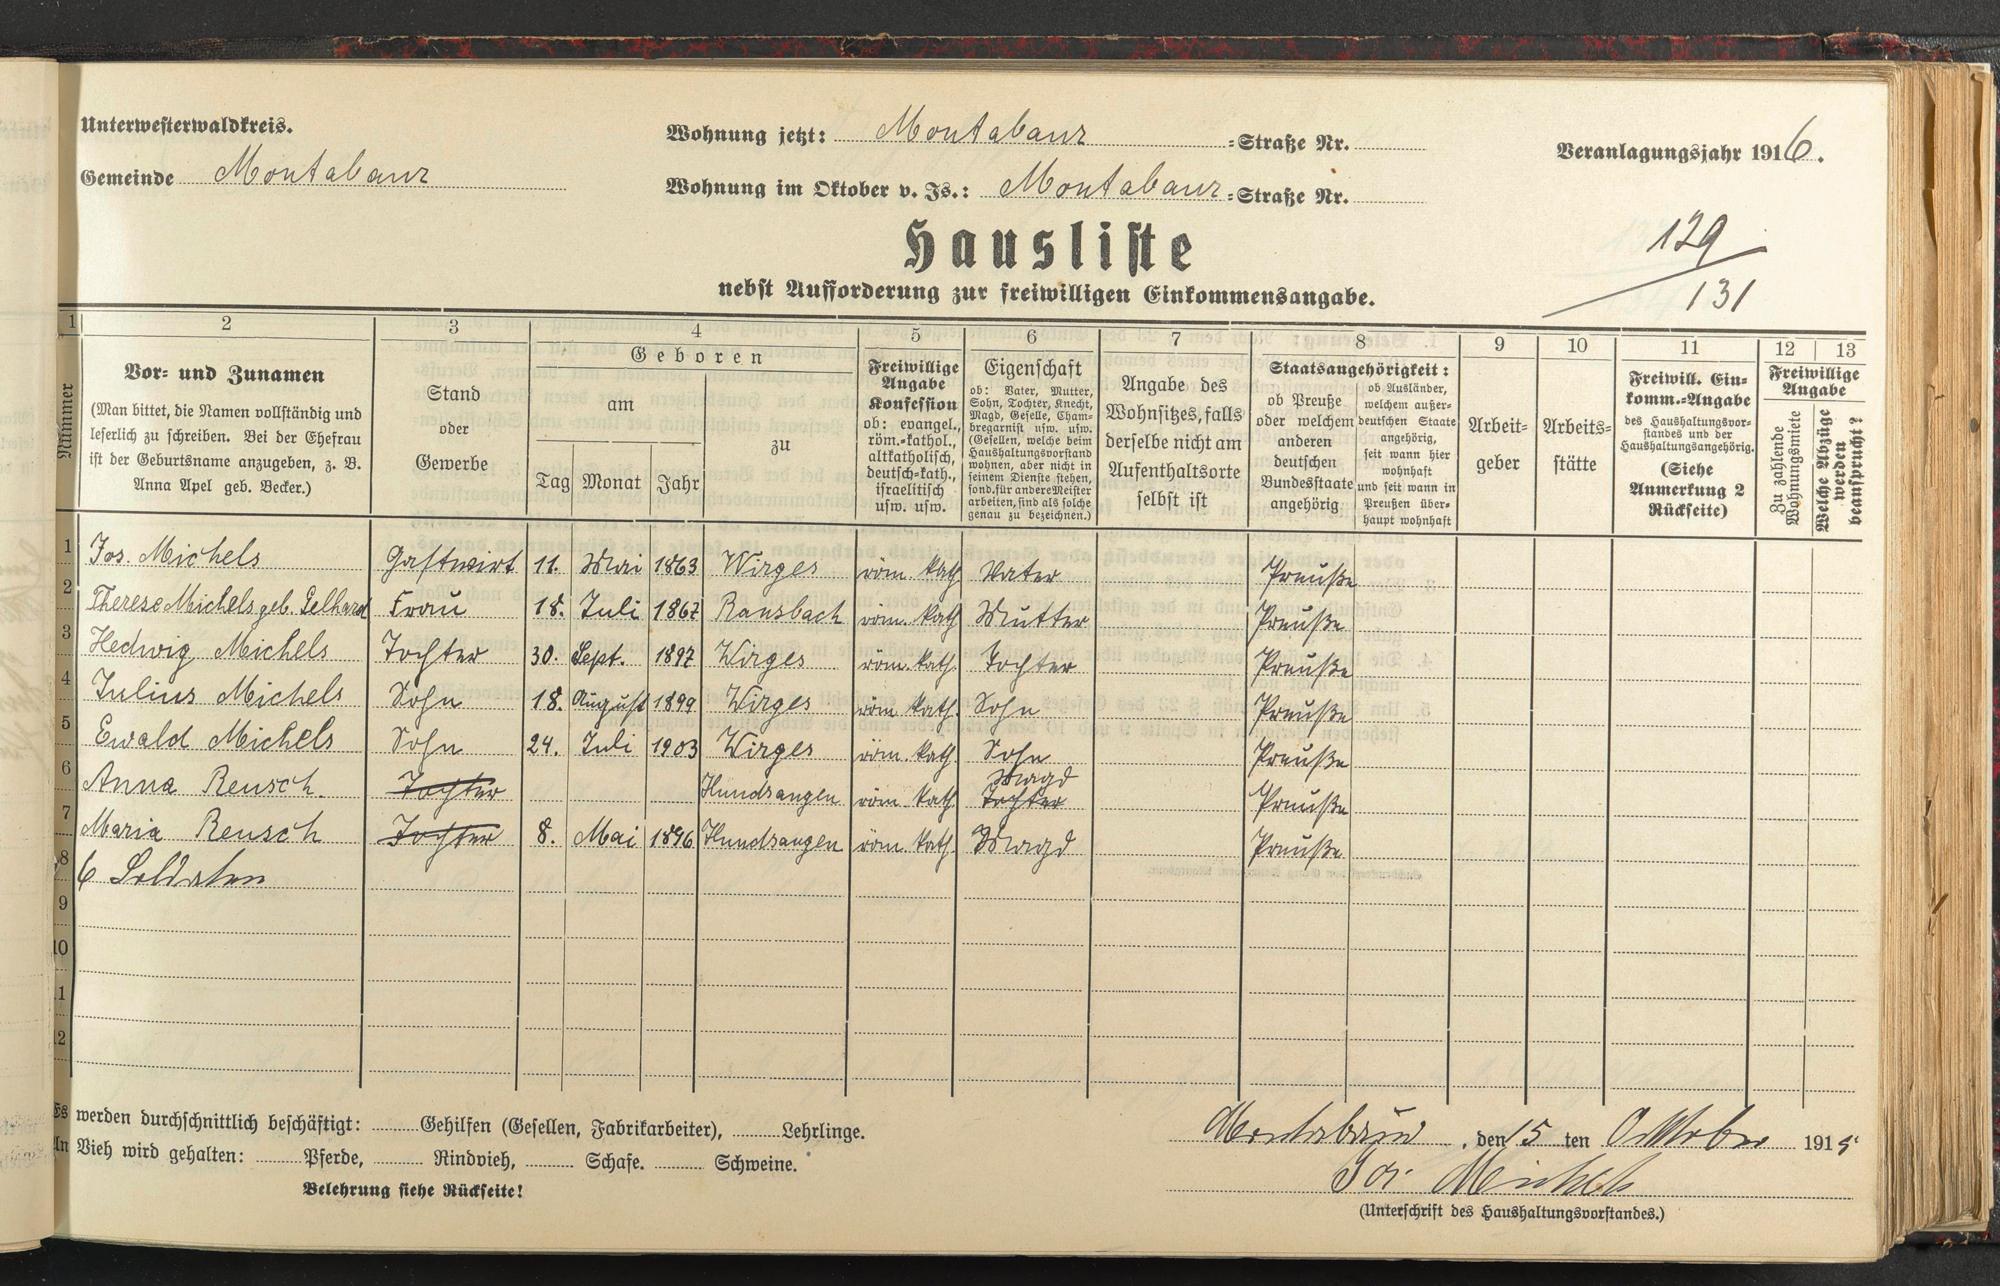 Unterwesterwaldkreis.
Gemeinde Montabaur
Wohnung jetzt: Montabaur =Straße Nr.
Wohnung im Oktober v. Js.: Montabaur =Straße Nr.
Veranlagungsjahr 1916.
Hausliste
nebst Aufforderung zur freiwilligen Einkommensangabe.
129
131
1 2 3 4 5 6 7 8 9 10 11 12 13
Nummer
Vor- und Zunamen
(Man bittet, die Namen vollständig und
leserlich zu schreiben. Bei der Ehefrau
ist der Geburtsname anzugeben, z. B.
Anna Apel geb. Becker.)
Stand
oder
Gewerbe
Geboren
am
Tag Monat Jahr
zu
Freiwillige
Angabe
Konfession
ob: evangel.,
röm.-kathol.,
altkatholisch,
deutsch-kath.,
israelitisch
usw. usw.
Eigenschaft
ob: Vater, Mutter,
Sohn, Tochter, Knecht,
Magd, Geselle, Cham-
bregarnist usw. usw.
(Gesellen, welche beim
Haushaltungsvorstand
wohnen, aber nicht in
seinem Dienste stehen,
sond. für andere Meister
arbeiten, sind als solche
genau zu bezeichnen.)
Angabe des
Wohnsitzes, falls
derselbe nicht am
Aufenthaltsorte
selbst ist
Staatsangehörigkeit:
ob Preuße
oder welchem
anderen
deutschen
Bundesstaate
angehörig
ob Ausländer,
welchem außer-
deutschen Staate
angehörig,
seit wann hier
wohnhaft
und seit wann in
Preußen über-
haupt wohnhaft
Arbeit-
geber
Arbeits-
stätte
Freiwill. Ein-
komm.-Angabe
des Haushaltungsvor-
standes und der
Haushaltungsangehörig.
(Siehe
Anmerkung 2
Rückseite)
Freiwillige
Angabe
Zu zahlende
Wohnungsmiete
Welche Abzüge
werden
beansprucht?
1 Jos. Michels Gastwirt 11. Mai 1863 Wirges röm. kath. Vater Preuße
2 Therese Michels geb. Gelhard Frau 18. Juli 1867 Ransbach röm. kath. Mutter Preuße
3 Hedwig Michels Tochter 30. Sept. 1897 Wirges röm. kath. Tochter Preuße
4 Julius Michels Sohn 18. August 1899 Wirges röm. kath. Sohn Preuße
5 Ewald Michels Sohn 24. Juli 1903 Wirges röm. kath. Sohn Preuße
6 Anna Reusch. Tochter Hundsangen röm. kath. Magd Tochter Preuße
7 Maria Reusch Tochter 8. Mai 1896 Hundsangen röm. kath. Magd Preuße
8 6 Soldaten
9
10
11
12
Es werden durchschnittlich beschäftigt: Gehilfen (Gesellen, Fabrikarbeiter), Lehrlinge.
An Vieh wird gehalten: Pferde, Rindvieh, Schafe. Schweine.
Belehrung siehe Rückseite!
Montabaur, den 15 ten Oktober 1915
Jos. Michels
(Unterschrift des Haushaltungsvorstandes.)